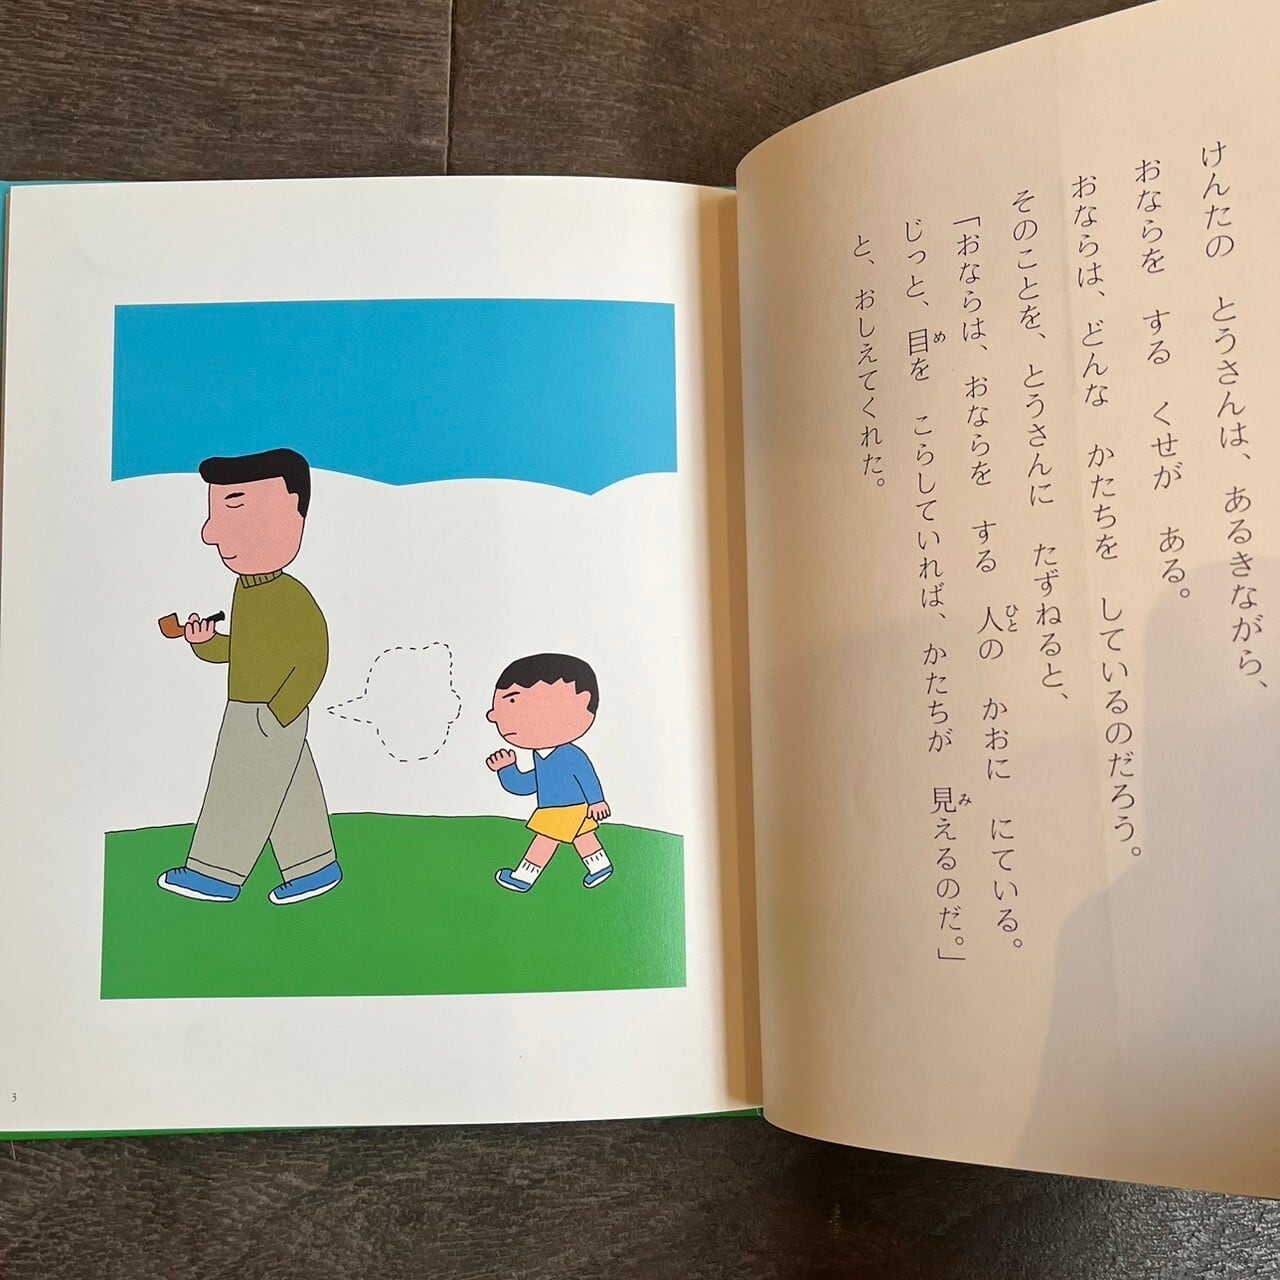 けんたの　とうさんは、あるきながら、
おならを　する　くせが　ある。
おならは、どんな　かたちを　しているのだろう。
そのことを、とうさんに　たずねると、
「おならは、おならを　する　人の　かおに　にている。
ひと
じっと、目を　こらしていれば、かたちが　見えるのだ。」
め
み
と、おしえてくれた。
3